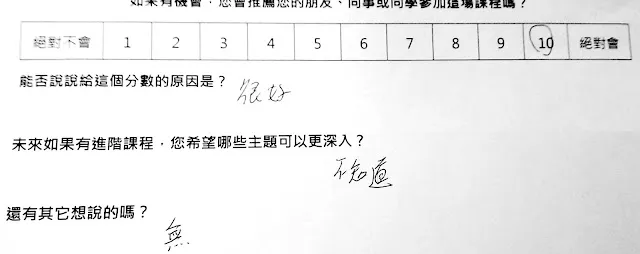 如果有機會，您會推薦您的朋友、同事或同學參加這場課程嗎？
絕對不會 1 2 3 4 5 6 7 8 9 10 絕對會
能否說說給這個分數的原因是？ 很好
未來如果有進階課程，您希望哪些主題可以更深入？
不知道
還有其它想說的嗎？
無